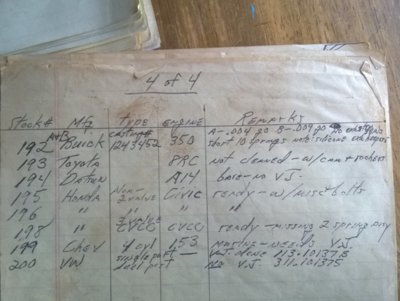 4 of 4
Stock# Mfg Type Engine Remarks
A+B casting# A-.004 go B-.009 go
192 Buick 1243452 350 start 10 springs note silicone
193 Toyota 8RC not cleaned-w/cam + rockers
194 Datsun A14 bare-no V.J.
195 Honda Non-2 valve Civic ready-w/misc bolts
196 " " " "
198 " 3 valve CVCC CVCC ready-missing 2 spring assy
199 Chev 4 cyl 153 marine-needs V.J.
200 VW single port — V.J. done 113.101373
dual port no V.J. 311.101375